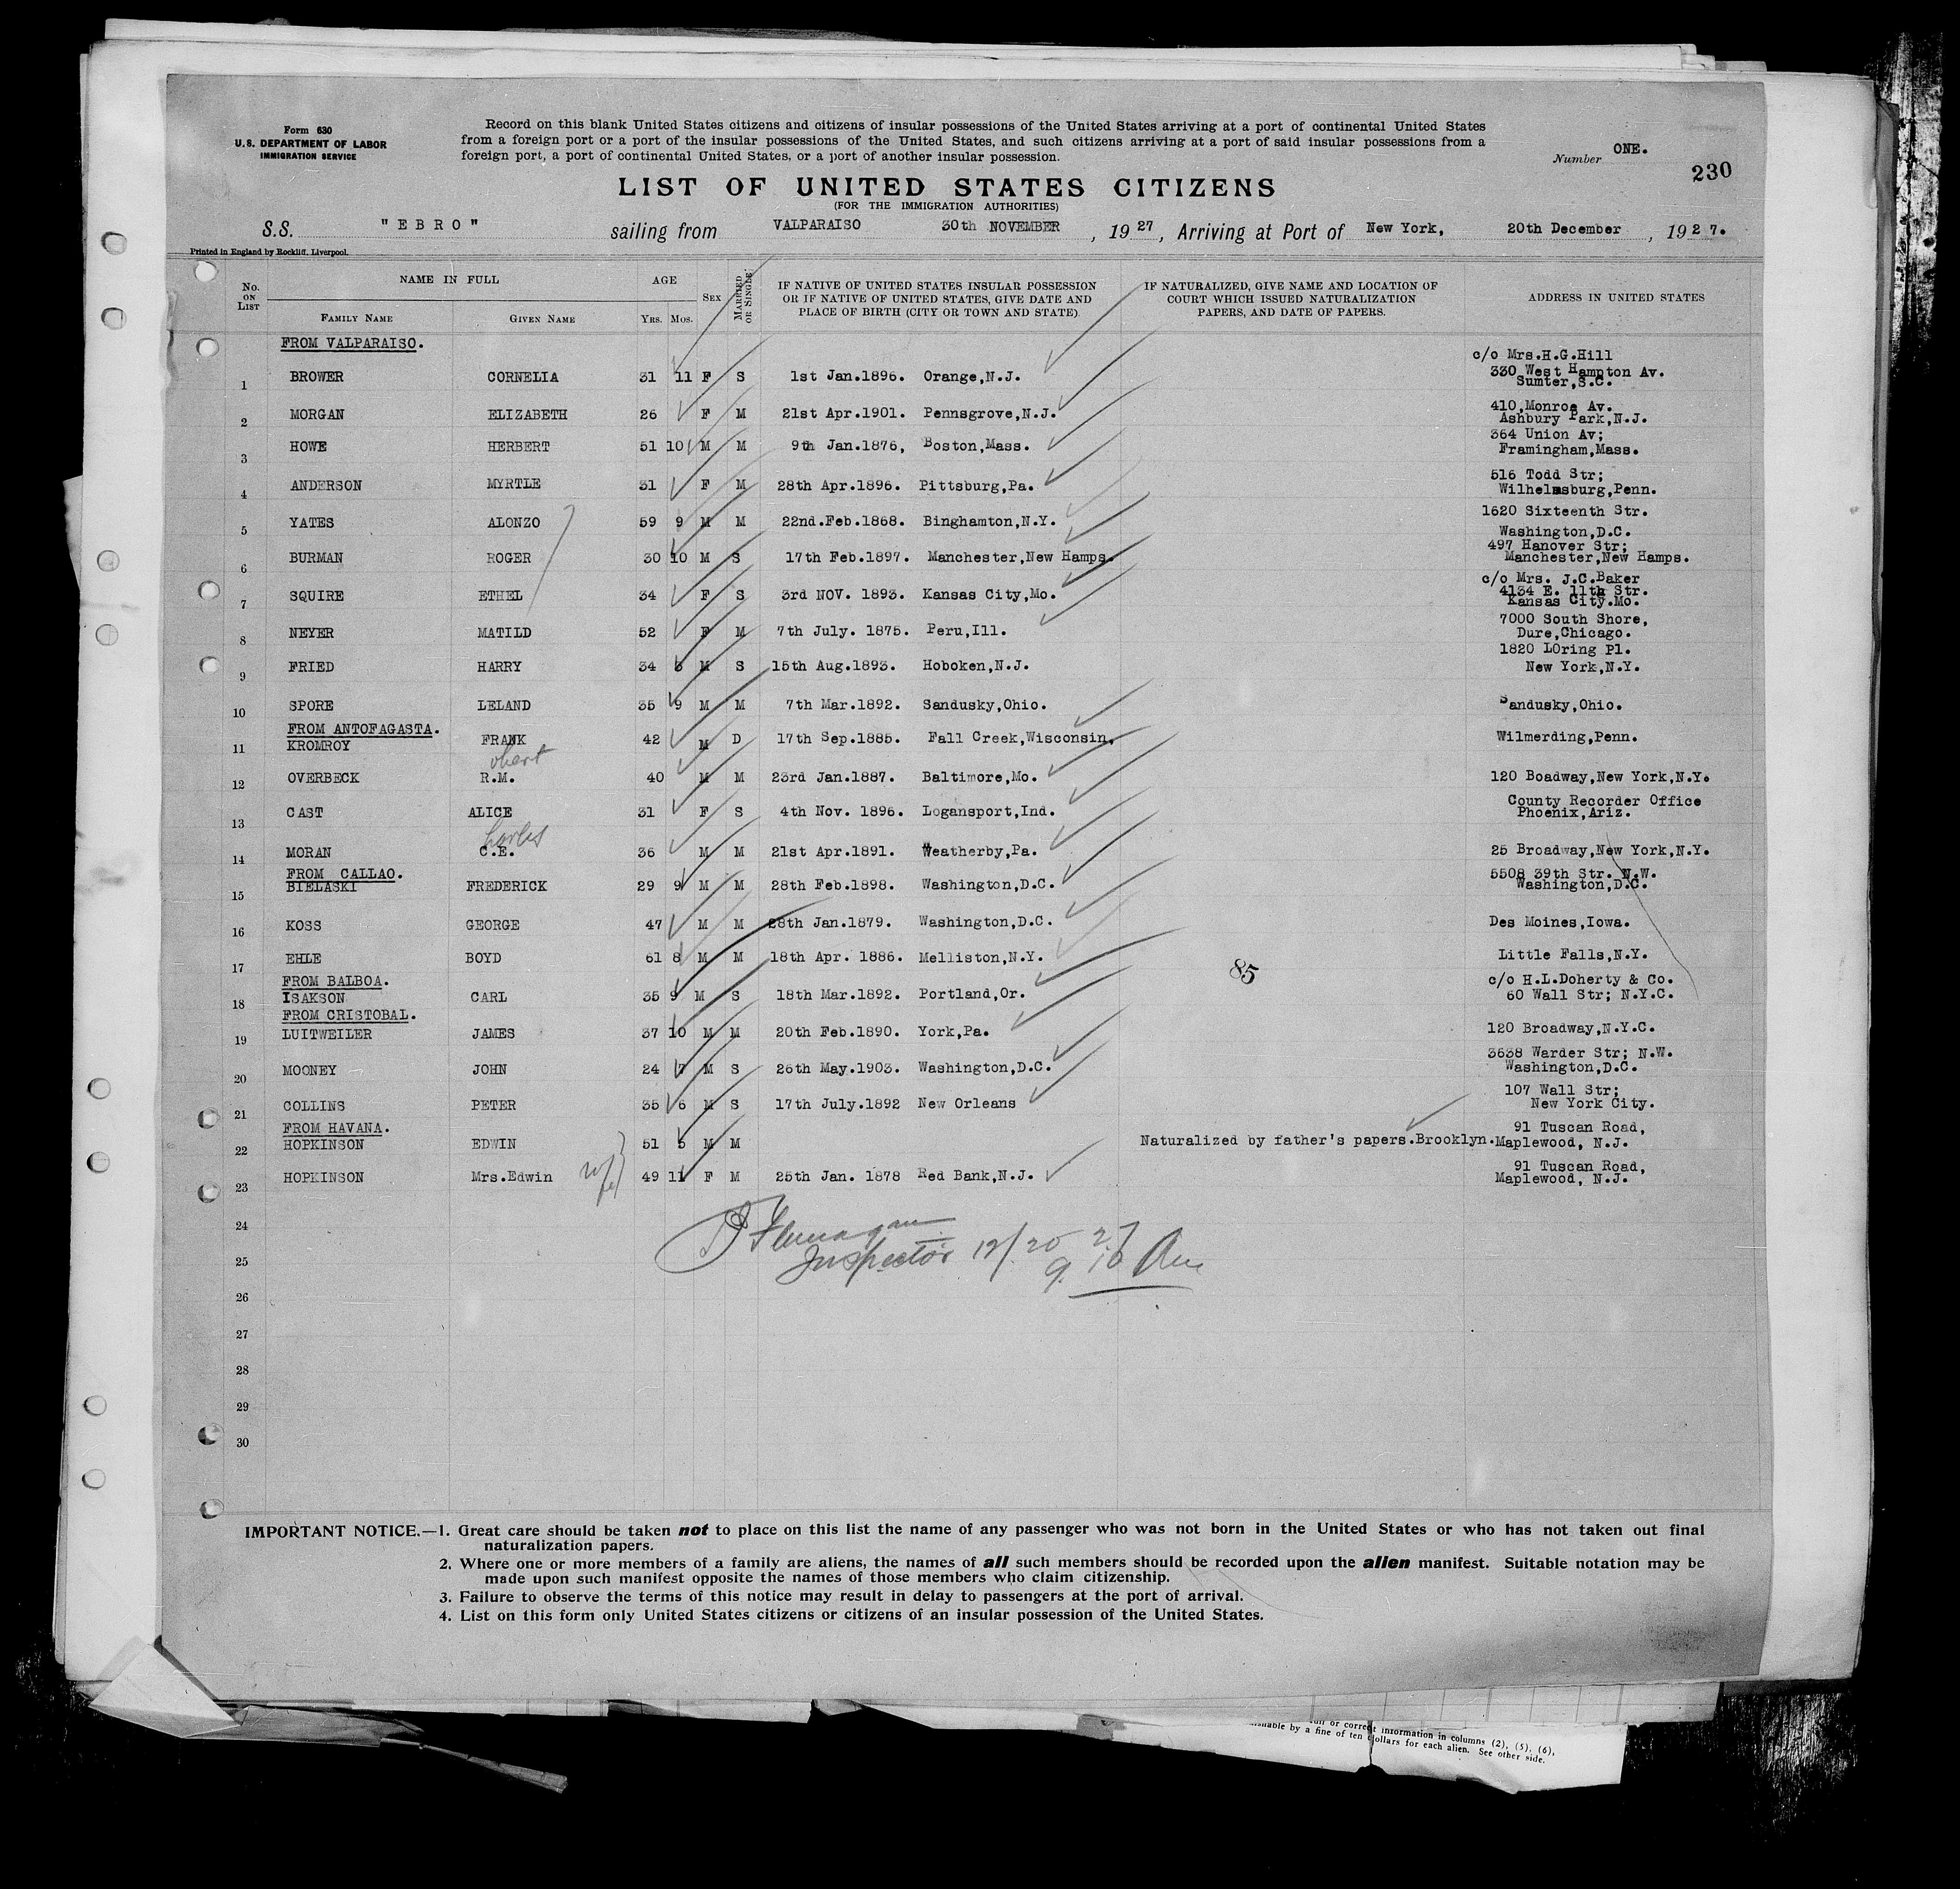 Form 630
U.S. DEPARTMENT OF LABOR
IMMIGRATION SERVICE
Record on this blank United States citizens and citizens of insular possessions of the United States arriving at a port of continental United States
from a foreign port or a port of the insular possessions of the United States, and such citizens arriving at a port of said insular possessions from a
foreign port, a port of continental United States, or a port of another insular possession.
Number ONE.
230
LIST OF UNITED STATES CITIZENS
(FOR THE IMMIGRATION AUTHORITIES)
S.S. "EBRO" sailing from VALPARAISO 30th NOVEMBER, 1927, Arriving at Port of New York, 20th December, 1927.
Printed in England by Rockliff, Liverpool.
No. ON LIST
NAME IN FULL
FAMILY NAME GIVEN NAME
AGE
YRS. MOS.
SEX
MARRIED OR SINGLE
IF NATIVE OF UNITED STATES INSULAR POSSESSION
OR IF NATIVE OF UNITED STATES, GIVE DATE AND
PLACE OF BIRTH (CITY OR TOWN AND STATE)
IF NATURALIZED, GIVE NAME AND LOCATION OF
COURT WHICH ISSUED NATURALIZATION
PAPERS, AND DATE OF PAPERS.
ADDRESS IN UNITED STATES
FROM VALPARAISO.
1 BROWER CORNELIA 31 11 F S 1st Jan.1896. Orange,N.J. c/o Mrs.H.G.Hill
330 West Hampton Av.
Sumter,S.C.
2 MORGAN ELIZABETH 26 F M 21st Apr.1901. Pennsgrove,N.J. 410,Monroe Av.
Ashbury Park,N.J.
3 HOWE HERBERT 51 10 M M 9th Jan.1876, Boston,Mass. 364 Union Av;
Framingham,Mass.
4 ANDERSON MYRTLE 31 F M 28th Apr.1896. Pittsburg,Pa. 516 Todd Str;
Wilhelmsburg,Penn.
5 YATES ALONZO 59 9 M M 22nd.Feb.1868. Binghamton,N.Y. 1620 Sixteenth Str.
Washington,D.C.
6 BURMAN ROGER 30 10 M S 17th Feb.1897. Manchester,New Hamps. 497 Hanover Str;
Manchester,New Hamps.
7 SQUIRE ETHEL 34 F S 3rd NOV. 1893. Kansas City,Mo. c/o Mrs. J.C.Baker
4134 E. 11th Str.
Kansas City.Mo.
8 NEYER MATILD 52 F M 7th July. 1875. Peru,Ill. 7000 South Shore,
Dure,Chicago.
9 FRIED HARRY 34 3 M S 15th Aug.1893. Hoboken,N.J. 1820 LOring Pl.
New York,N.Y.
10 SPORE LELAND 35 9 M M 7th Mar.1892. Sandusky,Ohio. Sandusky,Ohio.
FROM ANTOFAGASTA.
11 KROMROY FRANK 42 M D 17th Sep.1885. Fall Creek,Wisconsin. Wilmerding,Penn.
obert
12 OVERBECK R.M. 40 M M 23rd Jan.1887. Baltimore,Mo. 120 Boadway,New York,N.Y.
13 CAST ALICE 31 F S 4th Nov. 1896. Logansport,Ind. County Recorder Office
Phoenix,Ariz.
harles
14 MORAN C.E. 36 M M 21st Apr.1891. Weatherby,Pa. 25 Broadway,New York,N.Y.
FROM CALLAO.
15 BIELASKI FREDERICK 29 9 M M 28th Feb.1898. Washington,D.C. 5508 39th Str. N.W.
Washington,D.C.
16 KOSS GEORGE 47 M M 28th Jan.1879. Washington,D.C. Des Moines,Iowa.
17 EHLE BOYD 61 8 M M 18th Apr. 1886. Melliston,N.Y. Little Falls,N.Y.
85
FROM BALBOA.
18 ISAKSON CARL 35 9 M S 18th Mar.1892. Portland,Or. c/o H.L.Doherty & Co.
60 Wall Str; N.Y.C.
FROM CRISTOBAL.
19 LUITWEILER JAMES 37 10 M M 20th Feb.1890. York,Pa. 120 Broadway,N.Y.C.
20 MOONEY JOHN 24 7 M S 26th May.1903. Washington,D.C. 3638 Warder Str; N.W.
Washington,D.C.
21 COLLINS PETER 35 6 M S 17th July.1892 New Orleans 107 Wall Str;
New York City.
FROM HAVANA.
22 HOPKINSON EDWIN 51 5 M M Naturalized by father's papers.Brooklyn. 91 Tuscan Road,
Maplewood, N.J.
wife
23 HOPKINSON Mrs.Edwin 49 11 F M 25th Jan. 1878 Red Bank,N.J. 91 Tuscan Road,
Maplewood, N.J.
24
Flanagan
25
Inspector 12/20 27
9.10 Am
26
27
28
29
30
IMPORTANT NOTICE.—1. Great care should be taken not to place on this list the name of any passenger who was not born in the United States or who has not taken out final
naturalization papers.
2. Where one or more members of a family are aliens, the names of all such members should be recorded upon the alien manifest. Suitable notation may be
made upon such manifest opposite the names of those members who claim citizenship.
3. Failure to observe the terms of this notice may result in delay to passengers at the port of arrival.
4. List on this form only United States citizens or citizens of an insular possession of the United States.
or correct information in columns (2), (5), (6),
by a fine of ten dollars for each alien. See other side.